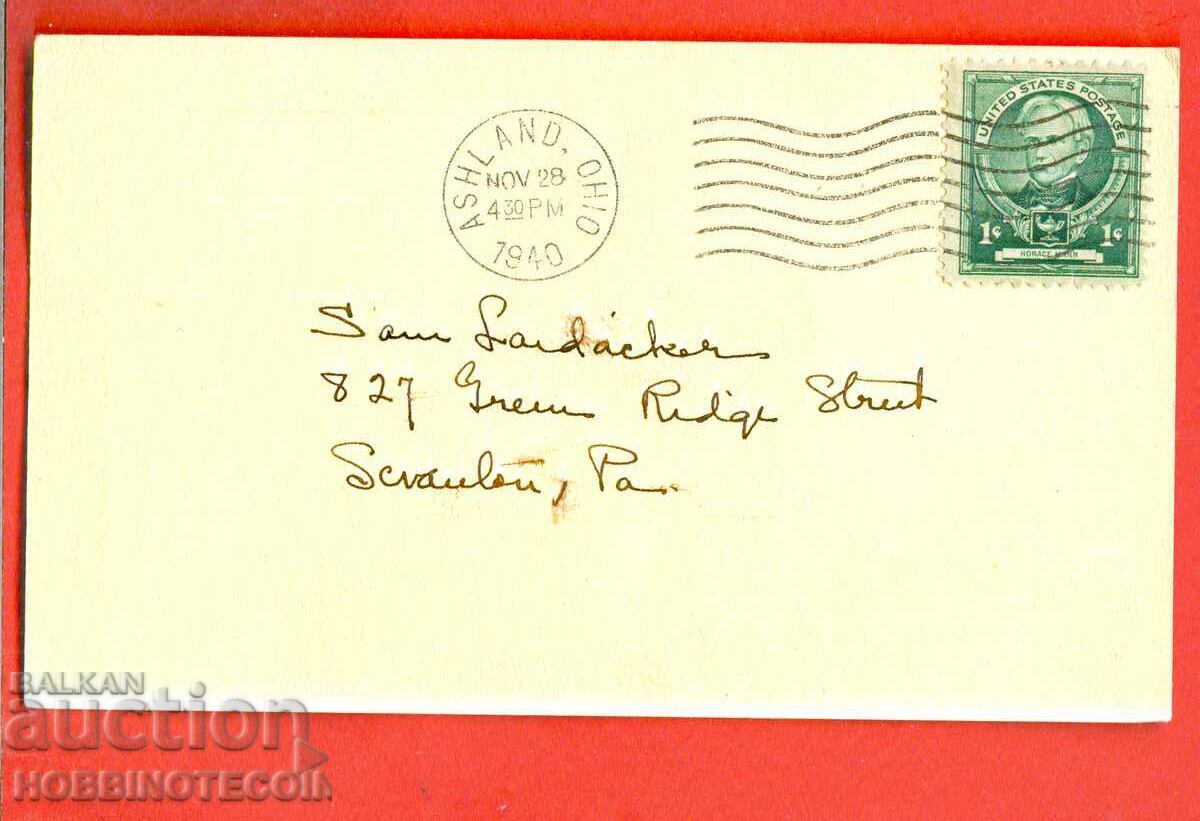 ASHLAND, OHIO
NOV 28
4 30 PM
1940
UNITED STATES POSTAGE
1¢ 1¢
HORACE MANN
Sam Lardackers
827 Green Ridge Street
Scranton, Pa.
BALKAN
auction
HOBBINOTECOIN